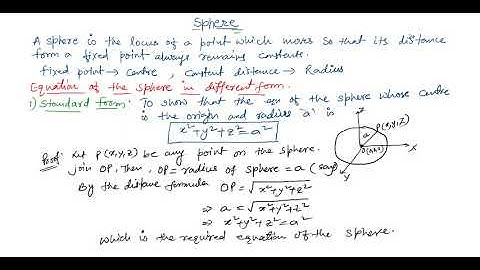 Sphere
A sphere is the locus of a point which moves so that its distance
form a fixed point always remains constents.
fixed point → Centre, constent distance → Radius
Equation of the sphere in different form.
1) Standard form: To show that the eqn of the sphere whose centre
is the origin and radius 'a' is
x²+y²+z²=a²
Proof: Let P(x,y,z) be any point on the sphere.
Join OP, Then, OP = radius of sphere = a (say)
By the distance formula OP = √x²+y²+z²
⇒ a = √x²+y²+z²
⇒ x²+y²+z² = a²
Which is the required equation of the sphere.
Z
P(x,y,z)
a
X
Y